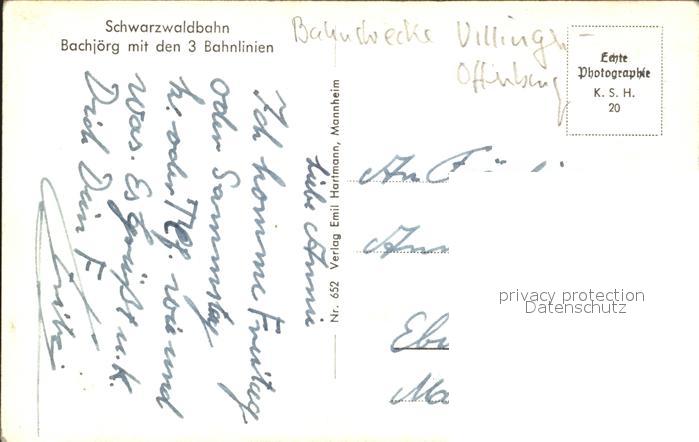 Schwarzwaldbahn
Bachjörg mit den 3 Bahnlinien
Bahnstrecke Villingen -
Offenburg
Echte
Photographie
K. S. H.
20
Nr. 652 Verlag Emil Hartmann, Mannheim
Liebe Anni
Ich komme Freitag
oder Samstag
h. oder Tlg. wie und
was. Es grüßt u. k.
Dich Dein F
Fritz
An
Ann
Ebe
Ma
privacy protection
Datenschutz